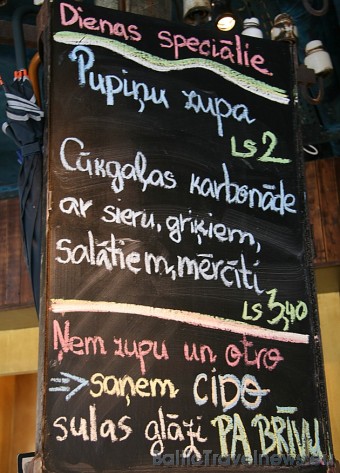 Dienas speciālie
Pupiņu zupa
Ls 2
Cūkgaļas karbonāde
ar sieru, griķiem,
salātiem, mērcīti
Ls 3,40
Ņem zupu un otro
⇒ saņem CIDO
sulas glāzi PA BRĪVU
BalticTravelnews.com